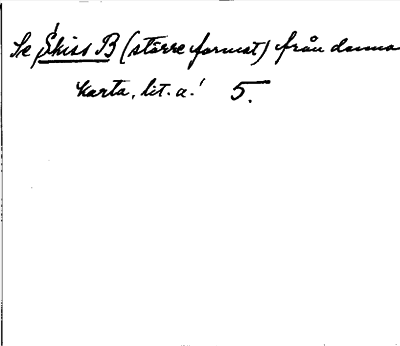 Se Skiss B (större format) från denna
karta, lit. a! 5.